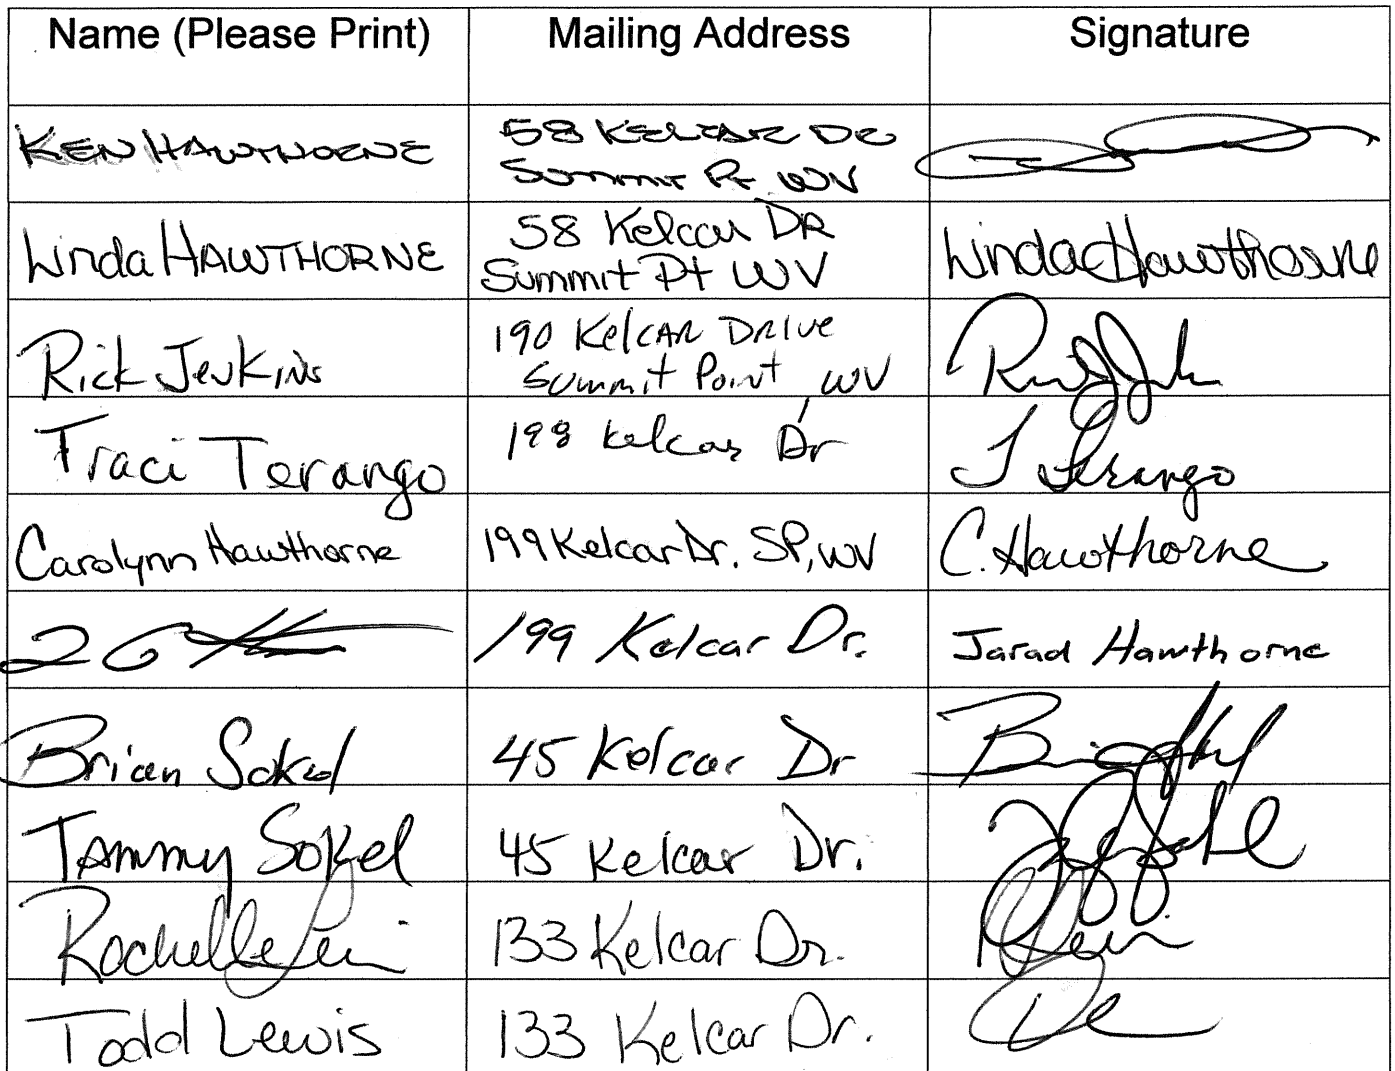 Name (Please Print) Mailing Address Signature
KEN HAWTHORNE 58 KELCAR DR
Summit Pt WV
Linda HAWTHORNE 58 Kelcar DR Linda Hawthorne
Summit Pt WV
Rick Jenkins 190 Kelcar Drive
Summit Point, WV
Traci Terango 198 Kelcar Dr T Terango
Carolynn Hawthorne 199 Kelcar Dr. SP, WV C. Hawthorne
199 Kelcar Dr. Jarad Hawthorne
Brian Sokel 45 Kelcar Dr
Tammy Sokel 45 Kelcar Dr.
Rochelle 133 Kelcar Dr.
Todd Lewis 133 Kelcar Dr.